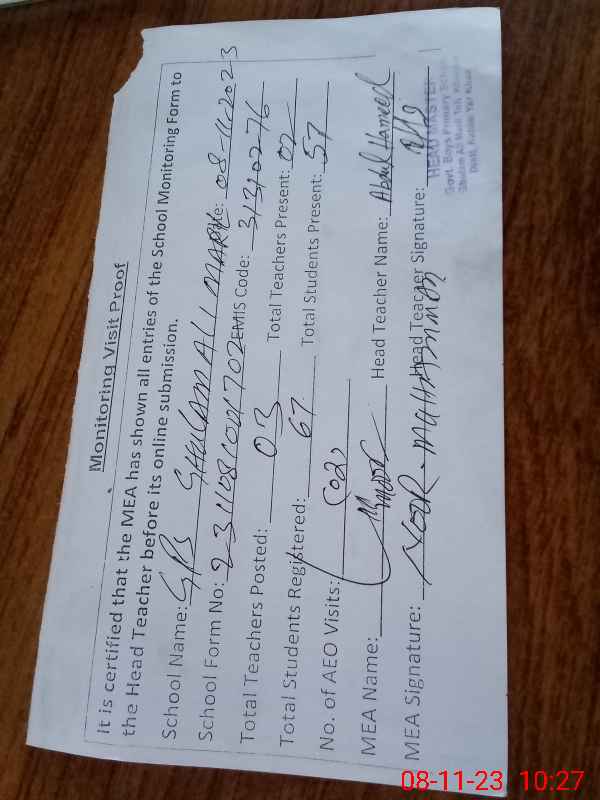 Monitoring Visit Proof
It is certified that the MEA has shown all entries of the School Monitoring Form to
the Head Teacher before its online submission.
School Name: GPS GHULAM ALI MARK Date: 08-11-2023
School Form No: EMIS Code: 31310276
Total Teachers Posted: 03 Total Teachers Present: 02
Total Students Registered: 67 Total Students Present: 57
No. of AEO Visits: (02)
MEA Name: Head Teacher Name: Abdul Hameed
MEA Signature: NOOR-MUHAMMAD Head Teacher Signature:
HEAD MASTER
Govt. Boys Primary School
Ghulam Ali
Distt. Rahim Yar Khan
08-11-23 10:27